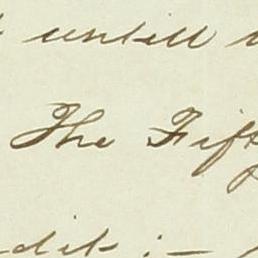 untill
The Fift
dit : —